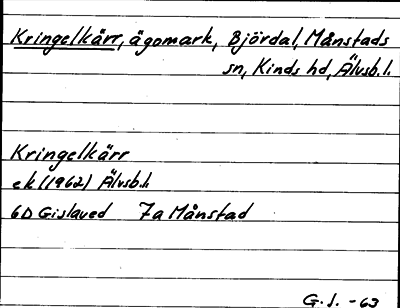 Kringelkärr, ägomark, Björdal, Månstads
sn, Kinds hd, Älvsb.l.
Kringelkärr
ek (1962) Älvsb.l.
6D Gislaved 7a Månstad
G.J. - 63